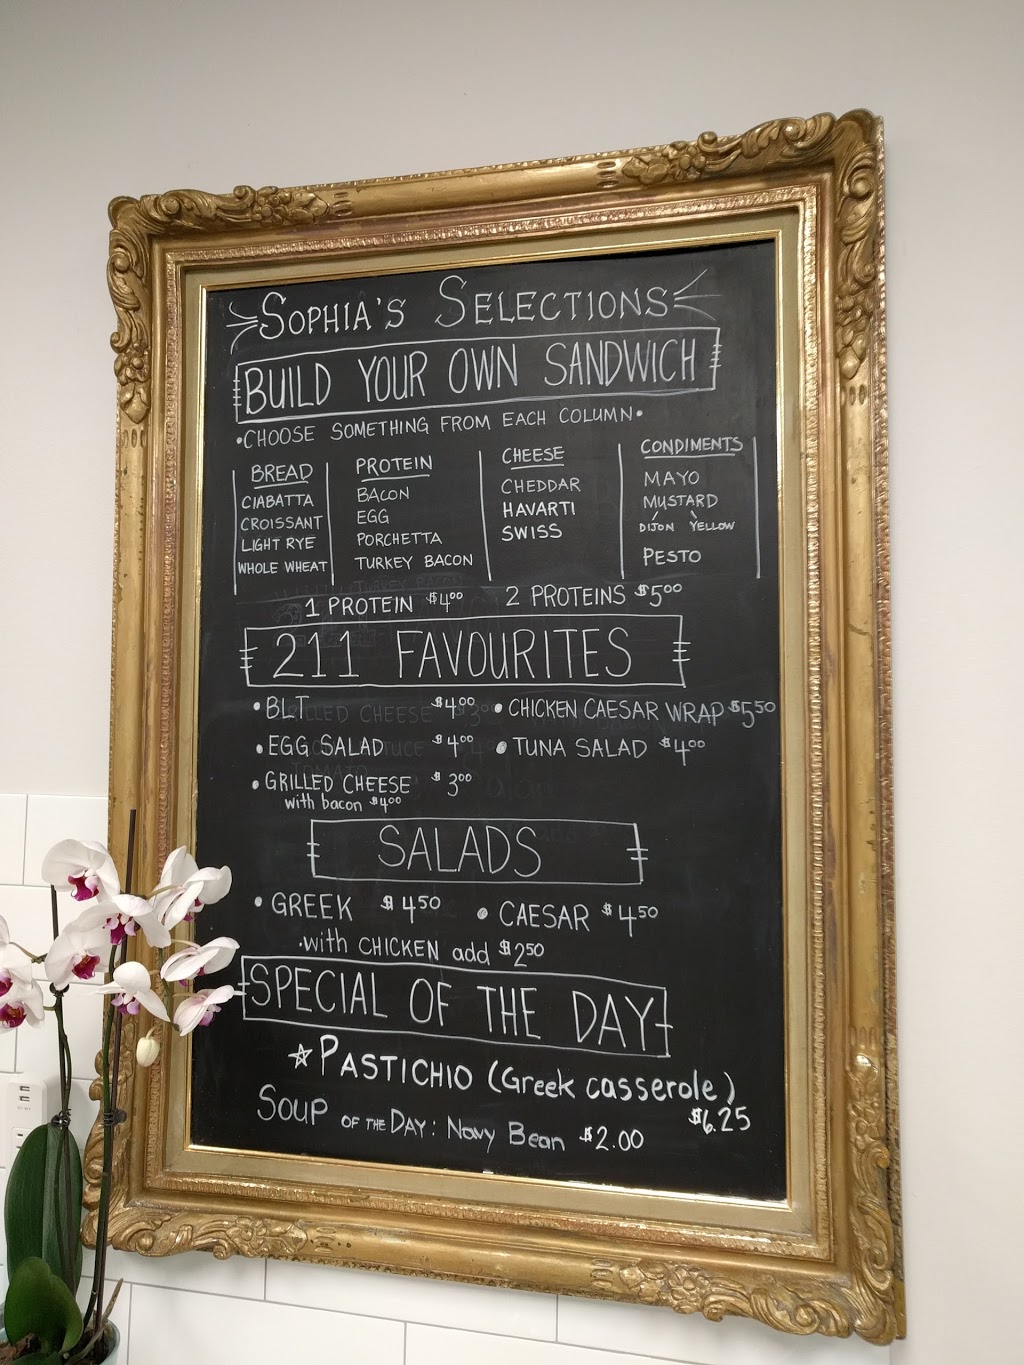 SOPHIA'S SELECTIONS
BUILD YOUR OWN SANDWICH
•CHOOSE SOMETHING FROM EACH COLUMN•
BREAD
CIABATTA
CROISSANT
LIGHT RYE
WHOLE WHEAT
PROTEIN
BACON
EGG
PORCHETTA
TURKEY BACON
CHEESE
CHEDDAR
HAVARTI
SWISS
CONDIMENTS
MAYO
MUSTARD
DIJON YELLOW
PESTO
1 PROTEIN $4.00 2 PROTEINS $5.00
211 FAVOURITES
•BLT $4.00 •CHICKEN CAESAR WRAP $5.50
•EGG SALAD $4.00 •TUNA SALAD $4.00
•GRILLED CHEESE $3.00
with bacon $4.00
SALADS
•GREEK $4.50 •CAESAR $4.50
•with CHICKEN add $2.50
SPECIAL OF THE DAY
☆PASTICHIO (Greek casserole)
$6.25
SOUP OF THE DAY: Navy Bean $2.00